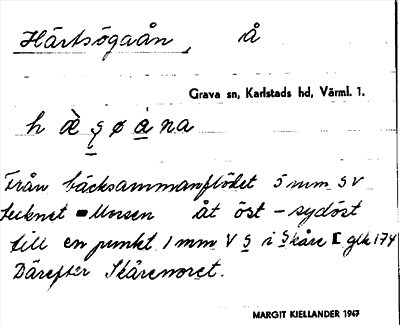 Härtsögaån, å
Grava sn, Karlstads hd, Värml. 1.
Från bäcksammanflödet 5 mm SV
tecknet åt öst - sydöst
till en punkt 1 mm V s i Skåre glk 174
Därefter Skårenoret.
MARGIT KJELLANDER 1947